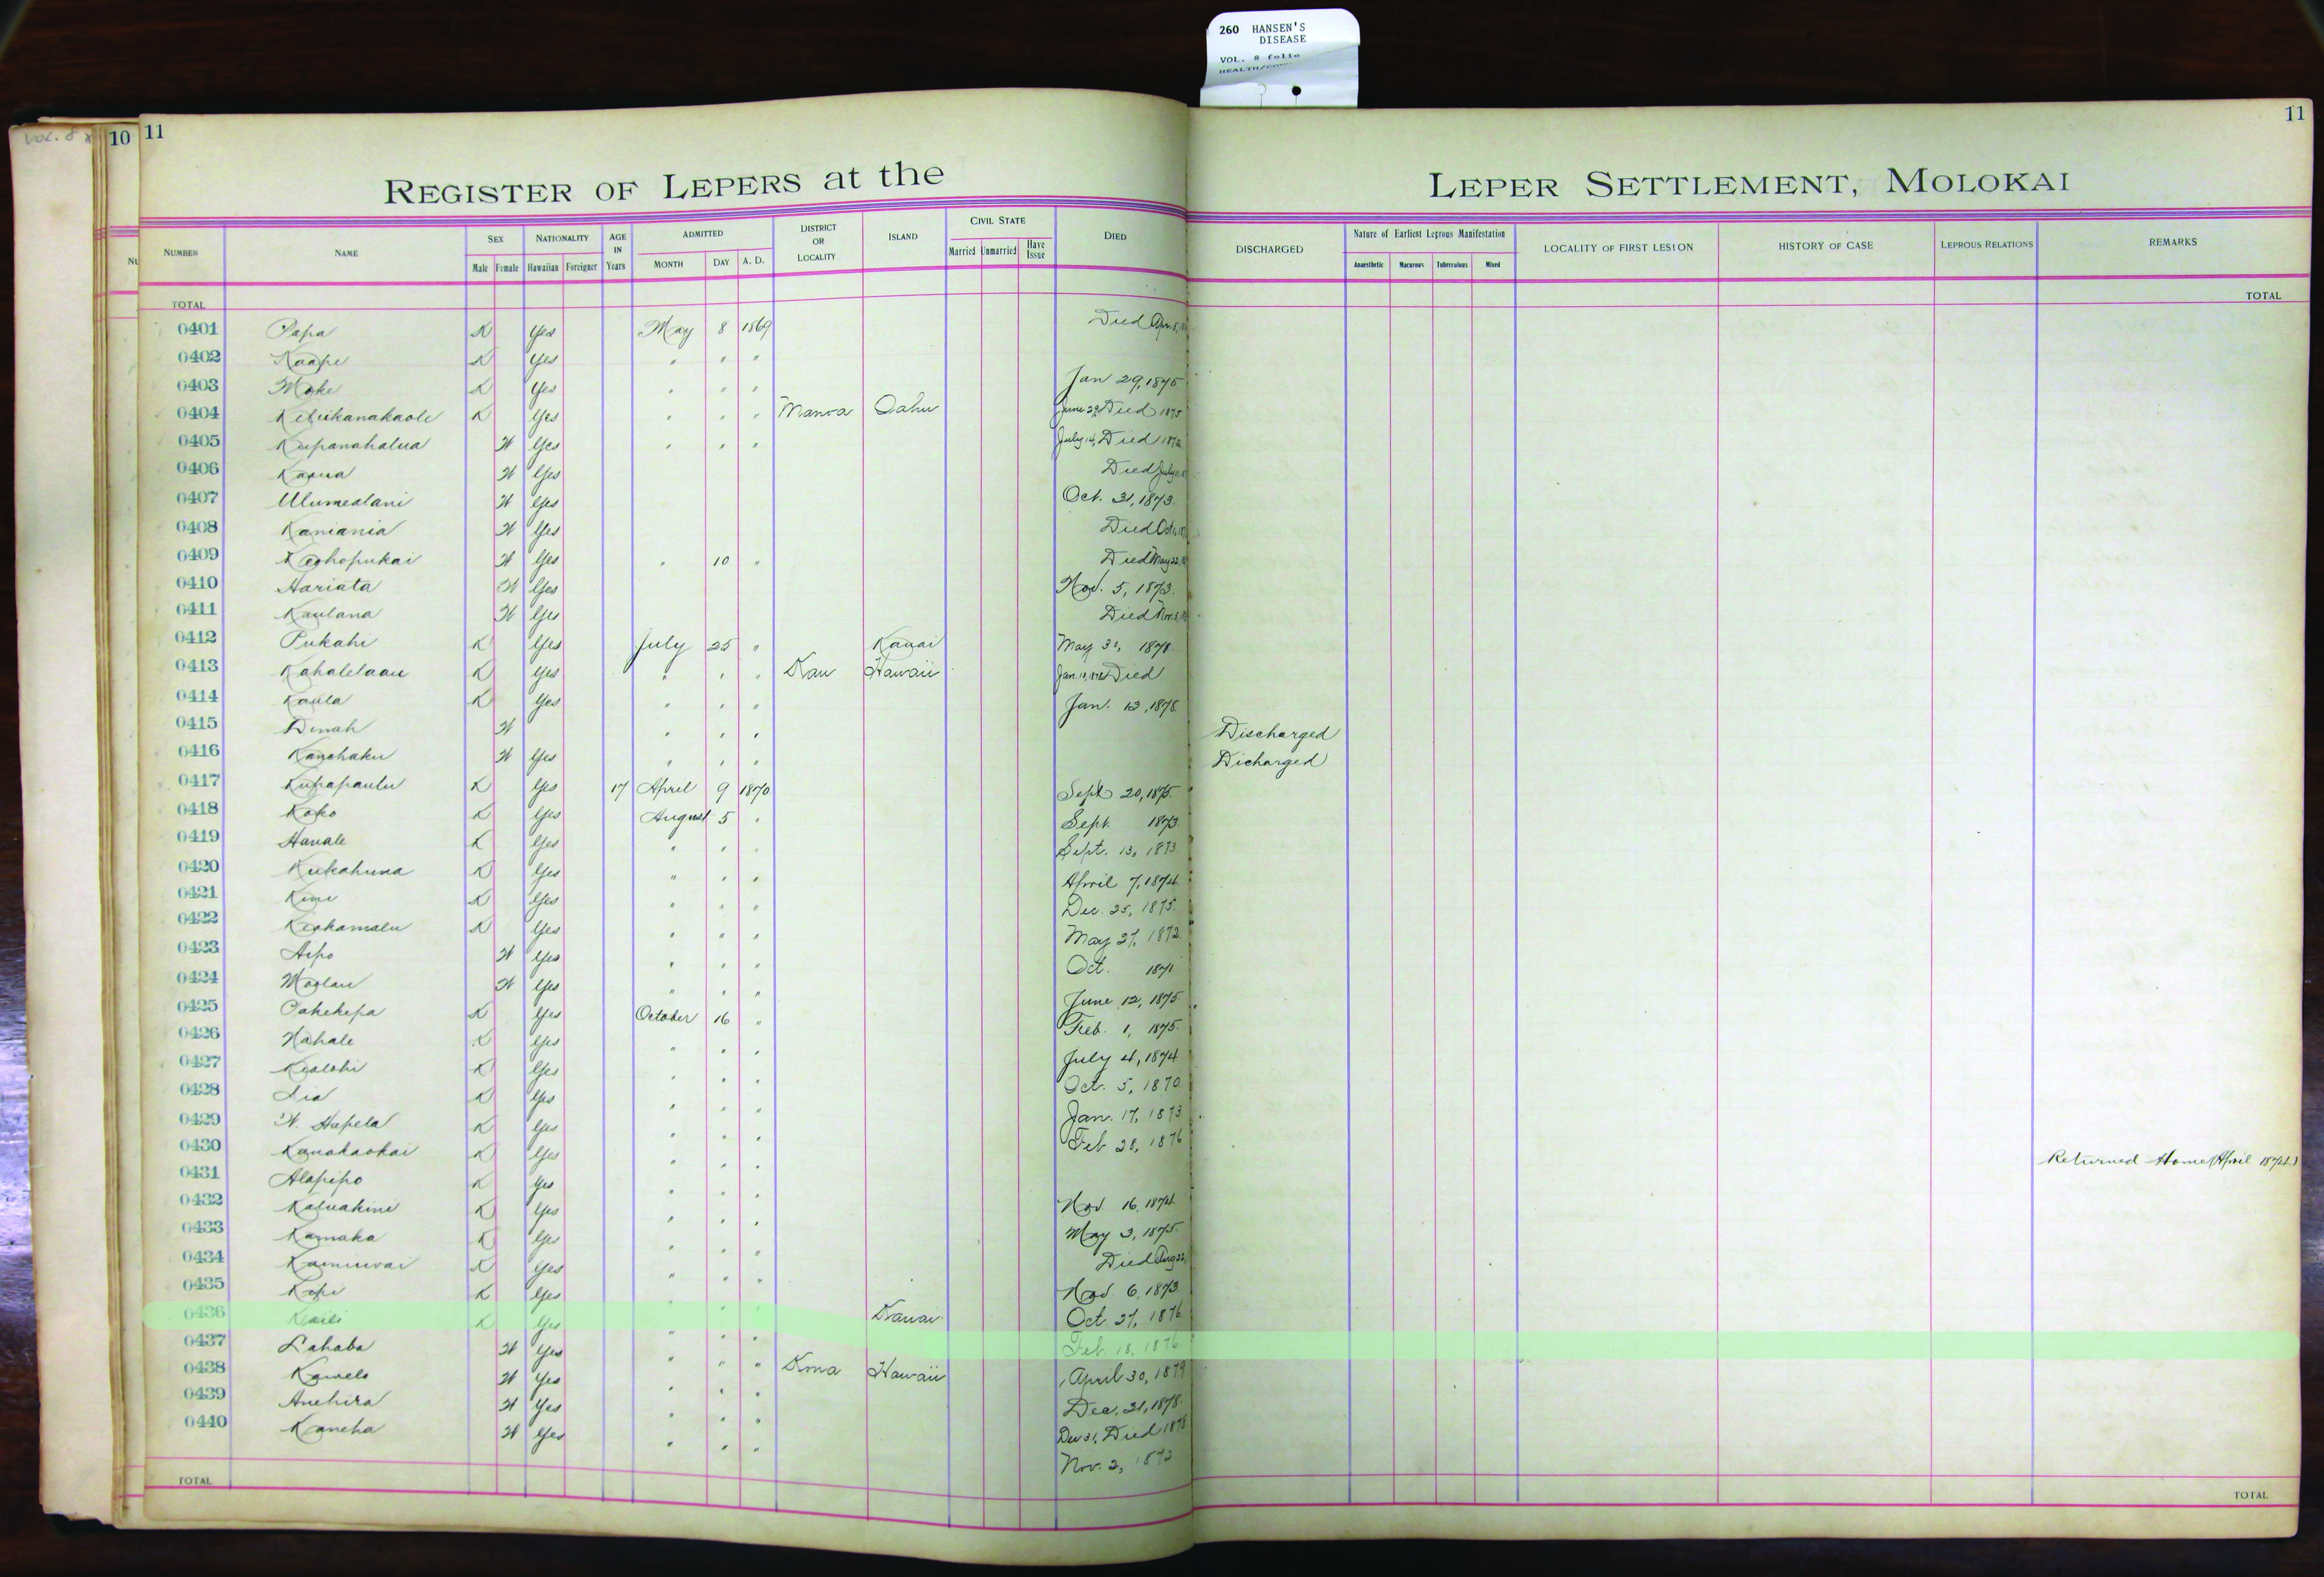 260 HANSEN'S
DISEASE
VOL. 8 folio
VOL. 8
10 11
11
REGISTER OF LEPERS at the LEPER SETTLEMENT, MOLOKAI
NUMBER NAME SEX NATIONALITY AGE IN Years ADMITTED DISTRICT OR LOCALITY ISLAND CIVIL STATE DIED DISCHARGED Nature of Earliest Leprous Manifestation LOCALITY OF FIRST LESION HISTORY OF CASE LEPROUS RELATIONS REMARKS
Male Female Hawaiian Foreigner MONTH DAY A. D. Married Unmarried Have Issue Anaesthetic Macurous Tuberculous Mixed
TOTAL TOTAL
0401 Papa K Yes May 8 1869 Died Apr. 8,
0402 Kaape K Yes " " "
0403 Moke K Yes " " " Jan 29, 1875
0404 Keliikanakaole K Yes " " " Manoa Oahu June 29, Died 1875
0405 Kupanahalua W Yes " " " July 14, Died 1872
0406 Kapua W Yes Died July
0407 Ulumealani W Yes Oct. 31, 1873.
0408 Kaniania W Yes Died Oct
0409 Keohopukai W Yes " 10 " Died May 22,
0410 Hariata W Yes Nov. 5, 1873.
0411 Kaulana W Yes Died Nov. 5,
0412 Pukahi K Yes July 25 " Kauai May 31, 1878.
0413 Kahalelaau K Yes " " " Kau Hawaii Jan. Died
0414 Kaula K Yes " " " Jan. 12, 1878.
0415 Dinah W " " " Discharged
0416 Kanohaku W Yes " " " Dicharged
0417 Kupapaulu K Yes 17 April 9 1870 Sept 20, 1875.
0418 Koko K Yes August 5 " Sept. 1873
0419 Hanale K Yes " " " Sept. 13, 1873
0420 Kukahuna K Yes " " " April 7, 1874
0421 Kini K Yes " " " Dec. 25, 1875.
0422 Keakamalu K Yes " " " May 27, 1872.
0423 Aipo W Yes " " " Oct. 1871
0424 Moolau W Yes " " " June 12, 1875
0425 Pakekepa K Yes October 16 " Feb. 1, 1875.
0426 Nahale K Yes " " " July 4, 1874
0427 Kealohi K Yes " " " Oct. 5, 1870
0428 Lia K Yes " " " Jan. 17, 1873
0429 W. Hapela K Yes " " " Feb 28, 1876
0430 Kanakaokai K Yes " " " Returned Home (April 1874.)
0431 Alapipo K Yes " " " Nov 16, 1874
0432 Kaluakini K Yes " " " May 3, 1875.
0433 Kamaka K Yes " " " Died Aug 22,
0434 Kainiwai K Yes " " " Nov. 6, 1873
0435 Kopi K Yes " " " Kauai Oct. 27, 1876
0436 Kaili K Yes " " " Feb. 18, 1876
0437 Lahaba W Yes " " " Kona Hawaii April 30, 1879
0438 Kawelo W Yes " " " Dec. 31, 1878.
0439 Anehira W Yes " " " Dec 31, Died 1878
0440 Kaneha W Yes " " " Nov. 2, 1872
TOTAL TOTAL